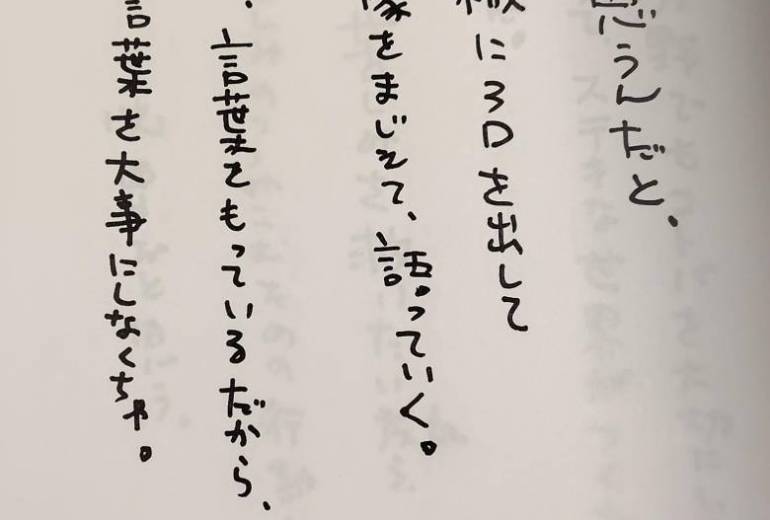 うんだと、
に3Dを出して
をまじえて、語っていく。
、言葉をもっているだから、
言葉を大事にしなくちゃ。